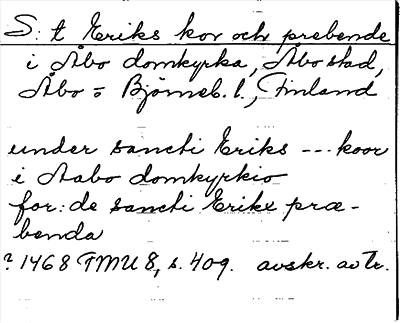 S:t Eriks kor och prebende
i Åbo domkyrka, Åbo stad,
Åbo = Björneb. l., Finland
under sancti Eriks --- koor
i Aabo domkyrkio
for: de sancti Erike præ-
benda
? 1468 FMU 8, s. 409. avskr. av tr.